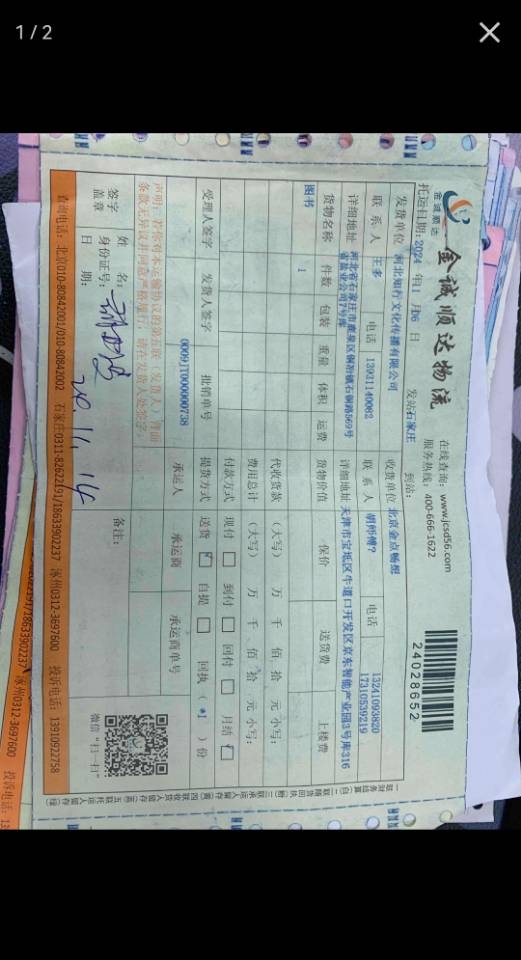 1 / 2
金诚顺达
金诚顺达物流
在线查询：www.jcsd56.com
服务热线：400-666-1622
24028652
托运日期：2024 年11 月06 日
发站石家庄
到站：
发货单位 河北知行文化传播有限公司
收货单位 北京金点畅想
联 系 人 王多
电话 13931140082
联 系 人 胡师傅?
电话 13241093820
17310539219
详细地址 河北省石家庄市鹿泉区铜冶镇石铜路569号
省盐业公司7号库
详细地址 天津市宝坻区牛道口开发区京东智能产业园3号库316
货物名称 件数 包装 重量 体积 运费 货物价值 保价 送货费 上楼费
图书 1
代收货款 （大写） 万 千 佰 拾 元 小写：
费用总计 （大写） 万 千 佰 拾 元 小写：
付款方式 现付 到付 回付 月结
受理人签字 发货人签字 批销单号
提货方式 送货 自提 回执（ *1 ）份
0009JT000000738
承运人 承运商 承运商单号
声明：若你对本运输协议的第五联（发货人）背面
条款无异议并同意严格履行，请在发货人处签字：
签字
盖章
姓 名：
身份证号：
日 期：
20.11.14
备注：
微信“扫一扫”
查询电话：北京010-80842001/010-80842002 石家庄0311-82622191/18633902237 涿州0312-3697600 投诉电话：13910922758
2622191/18633902237 涿州0312-3697600 投诉电话：13